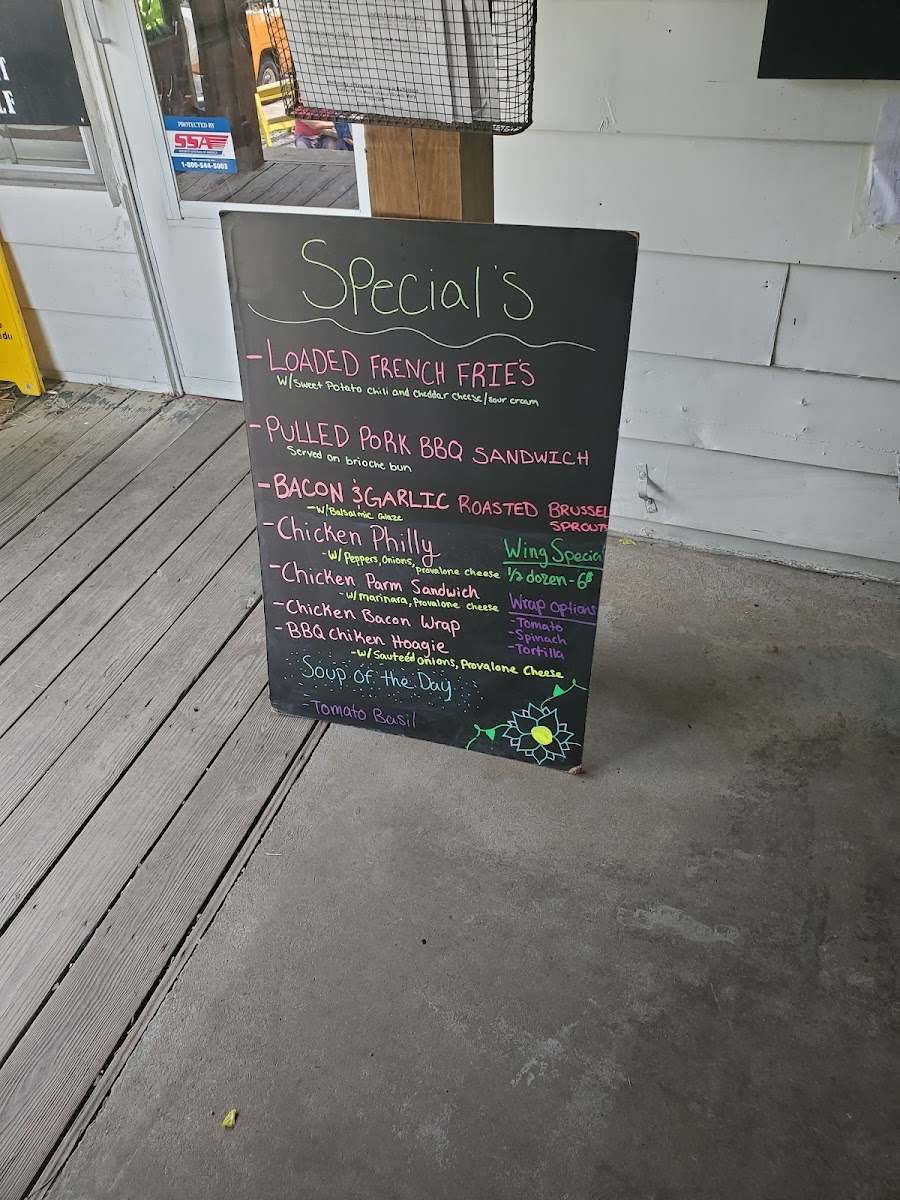 PROTECTED BY
SSA
1-800-544-5003
Special's
-LOADED FRENCH FRIE'S
W/Sweet Potato Chili and Cheddar Cheese/sour cream
-PULLED PORK BBQ SANDWICH
Served on brioche bun
-BACON & GARLIC ROASTED BRUSSEL
SPROUTS
-W/Balsalmic Glaze
-Chicken Philly
-W/Peppers, Onions, provalone cheese
-Chicken Parm Sandwich
-w/marinara, provalone cheese
-Chicken Bacon Wrap
-BBQ chiken Hoagie
-W/Sauteéd onions, Provalone Cheese
Wing Special
1/2 dozen-6$
Wrap options
-Tomato
-Spinach
-Tortilla
Soup of the Day
-Tomato Basil